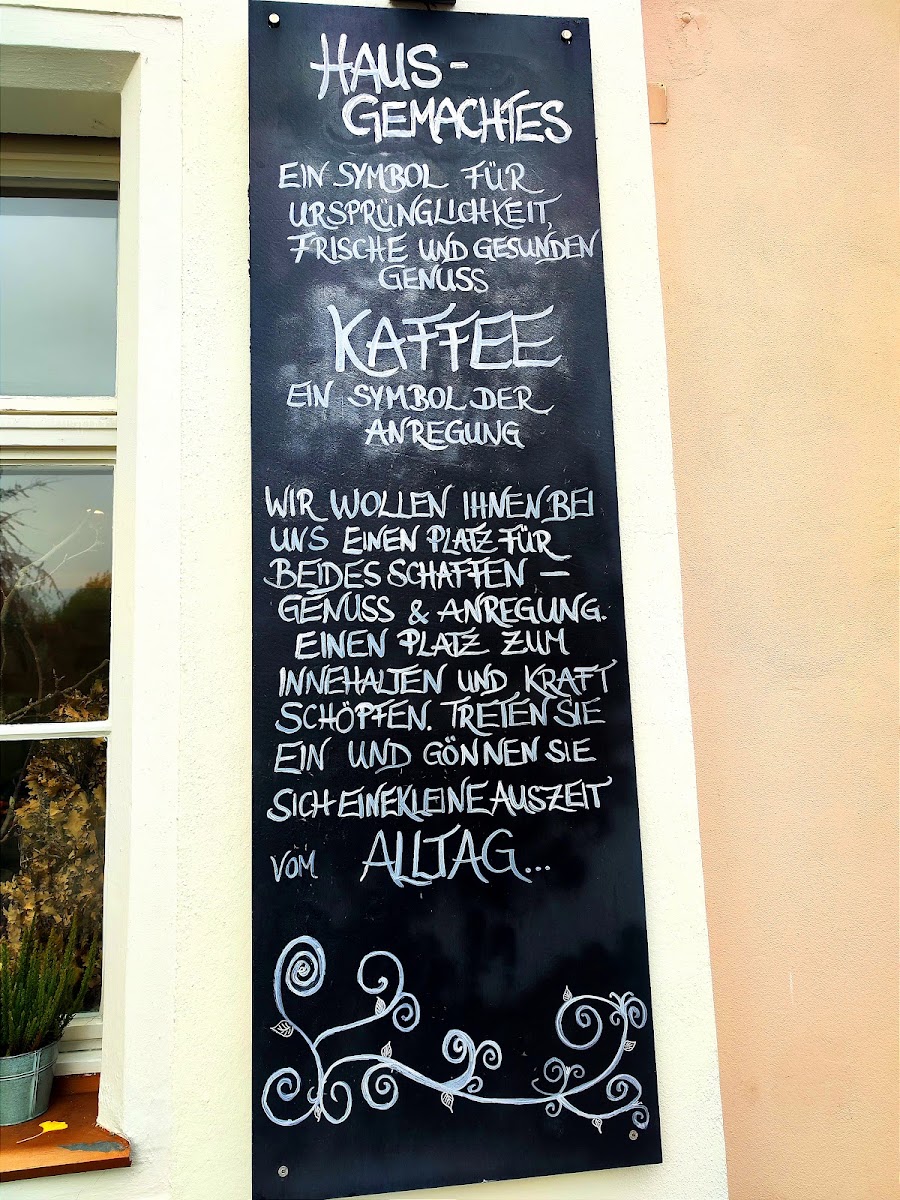 HAUS-
GEMACHTES
EIN SYMBOL FÜR
URSPRÜNGLICHKEIT,
FRISCHE UND GESUNDEN
GENUSS
KAFFEE
EIN SYMBOL DER
ANREGUNG
WIR WOLLEN IHNEN BEI
UNS EINEN PLATZ FÜR
BEIDES SCHAFFEN –
GENUSS & ANREGUNG.
EINEN PLATZ ZUM
INNEHALTEN UND KRAFT
SCHÖPFEN. TRETEN SIE
EIN UND GÖNNEN SIE
SICH EINE KLEINE AUSZEIT
VOM ALLTAG...